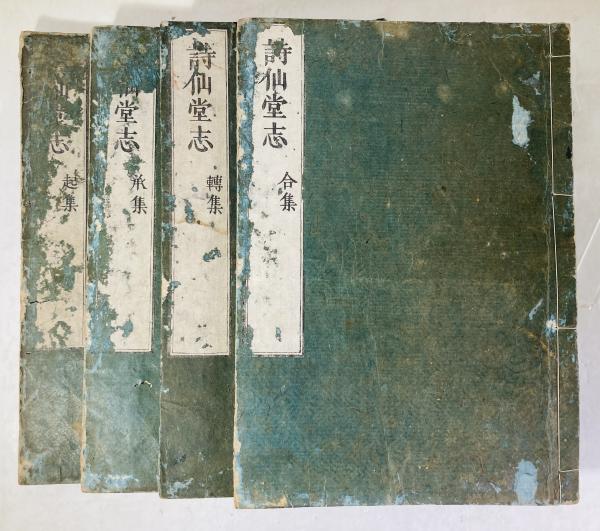 詩仙堂志
合集
詩仙堂志
轉集
仙堂志
承集
仙堂志
起集